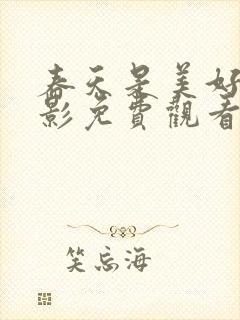 春天是美好
影免費觀看
笑忘海